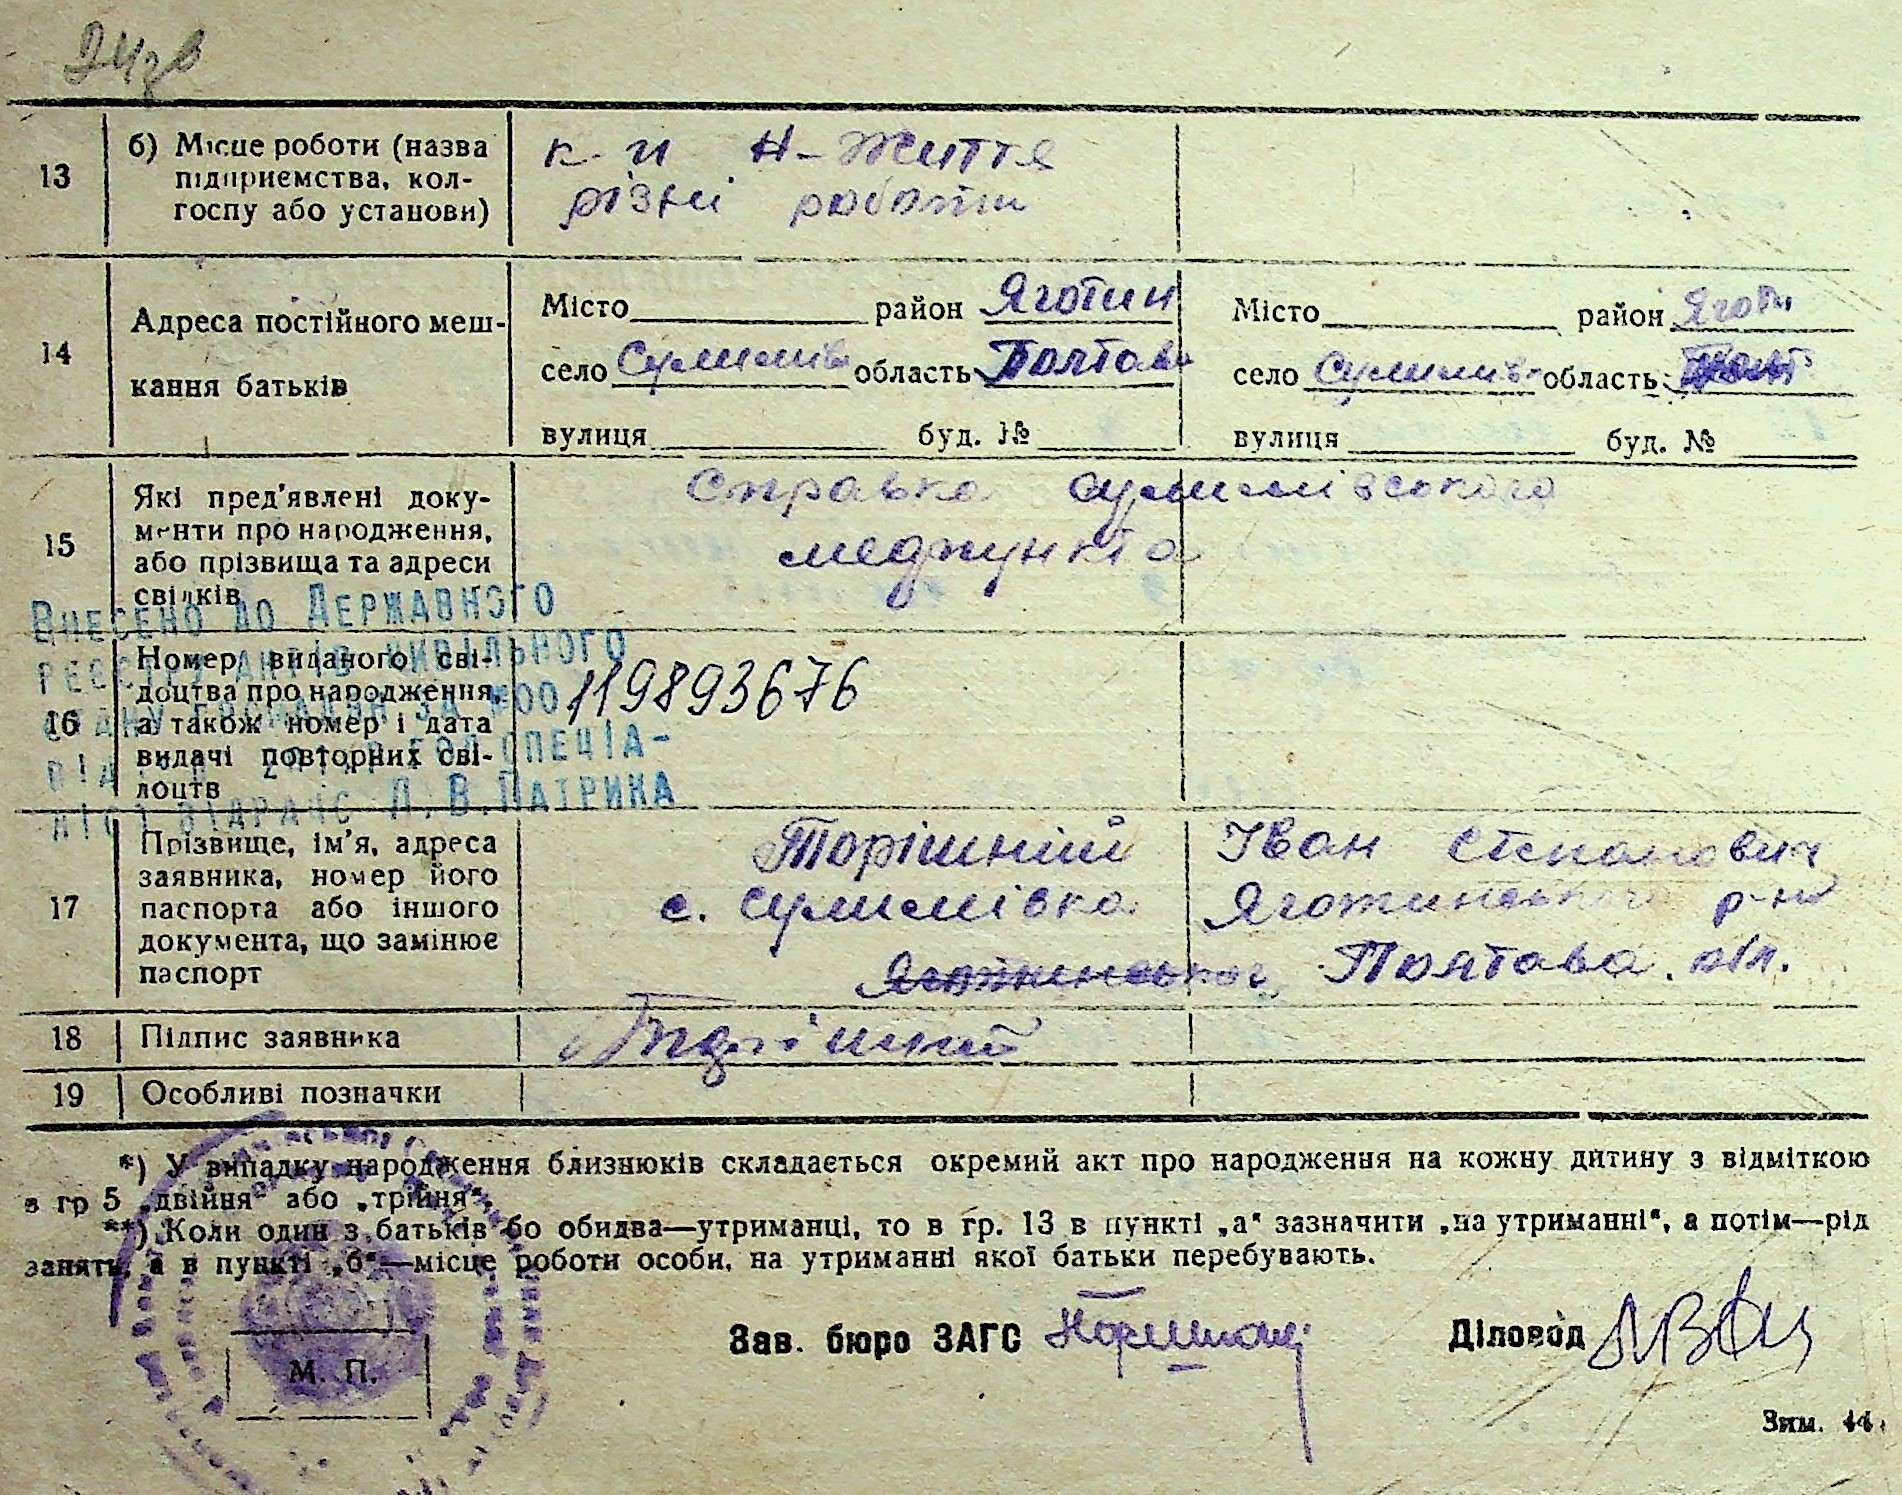 13 б) Місце роботи (назва підприємства, колгоспу або установи)
к-п Н-Життя
різні роботи
14 Адреса постійного мешкання батьків
Місто район Яготин
село Сулимів область Полтавс
вулиця буд. №
Місто район Ягот
село Сулимівк область Полт
вулиця буд. №
15 Які пред'явлені документи про народження, або прізвища та адреси свідків
Справка Сулимівського
медпункта
Внесено до Державного
реєстру актів цивільного
16 Номер виданого свідоцтва про народження, а також номер і дата видачі повторних свідоцтв
119893676
спеціа-
ліст відрацс Л.В.Патрика
17 Прізвище, ім'я, адреса заявника, номер його паспорта або іншого документа, що замінює паспорт
Торішній Іван Степанович
с. Сулимівка Яготинського р-на
Яготинського Полтавс. обл.
18 Підпис заявника
Торішній
19 Особливі позначки
*) У випадку народження близнюків складається окремий акт про народження на кожну дитину з відміткою
в гр 5 „двійня" або „трійня".
**) Коли один з батьків бо обидва—утриманці, то в гр. 13 в пункті „а" зазначити „на утриманні", а потім—рід
занять, а в пункті „б"—місце роботи особи, на утриманні якої батьки перебувають.
Зав. бюро ЗАГС Діловод
М. П.
Зим. 44